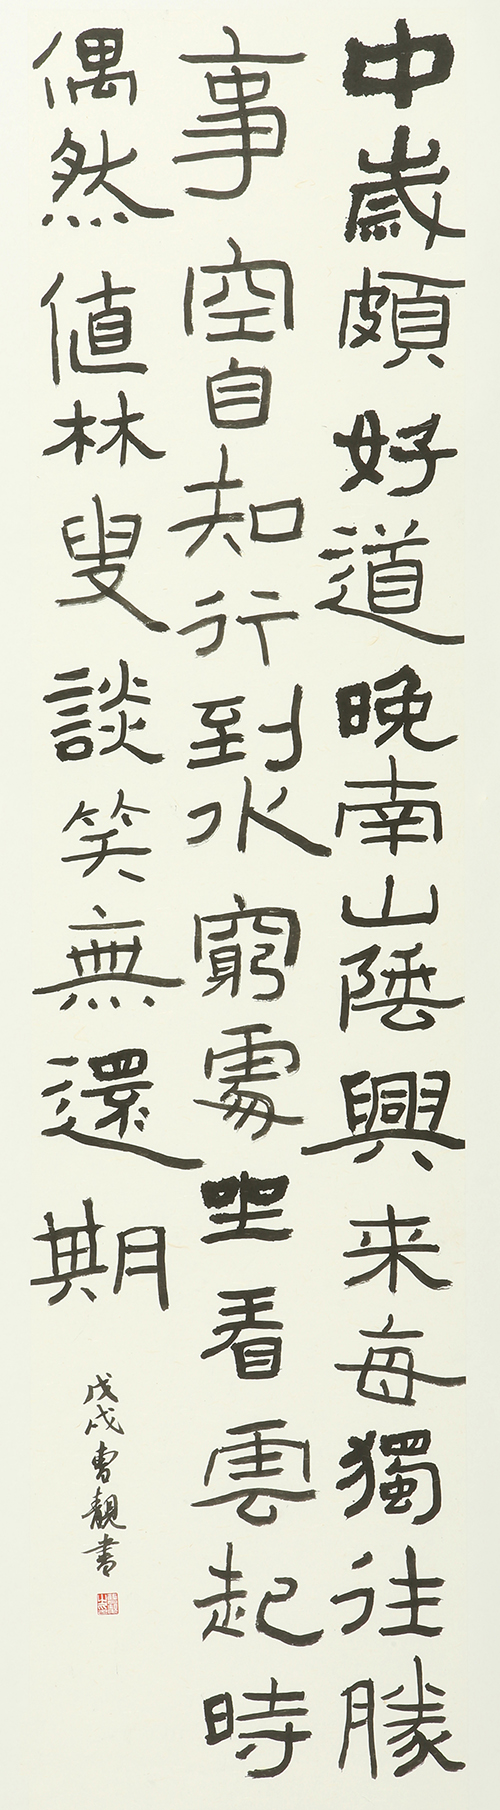 中歲頗好道晚南山陲興来每獨往勝
事空自知行到水窮處坐看雲起時
偶然值林叟談笑無還期
戊戌曹靚書